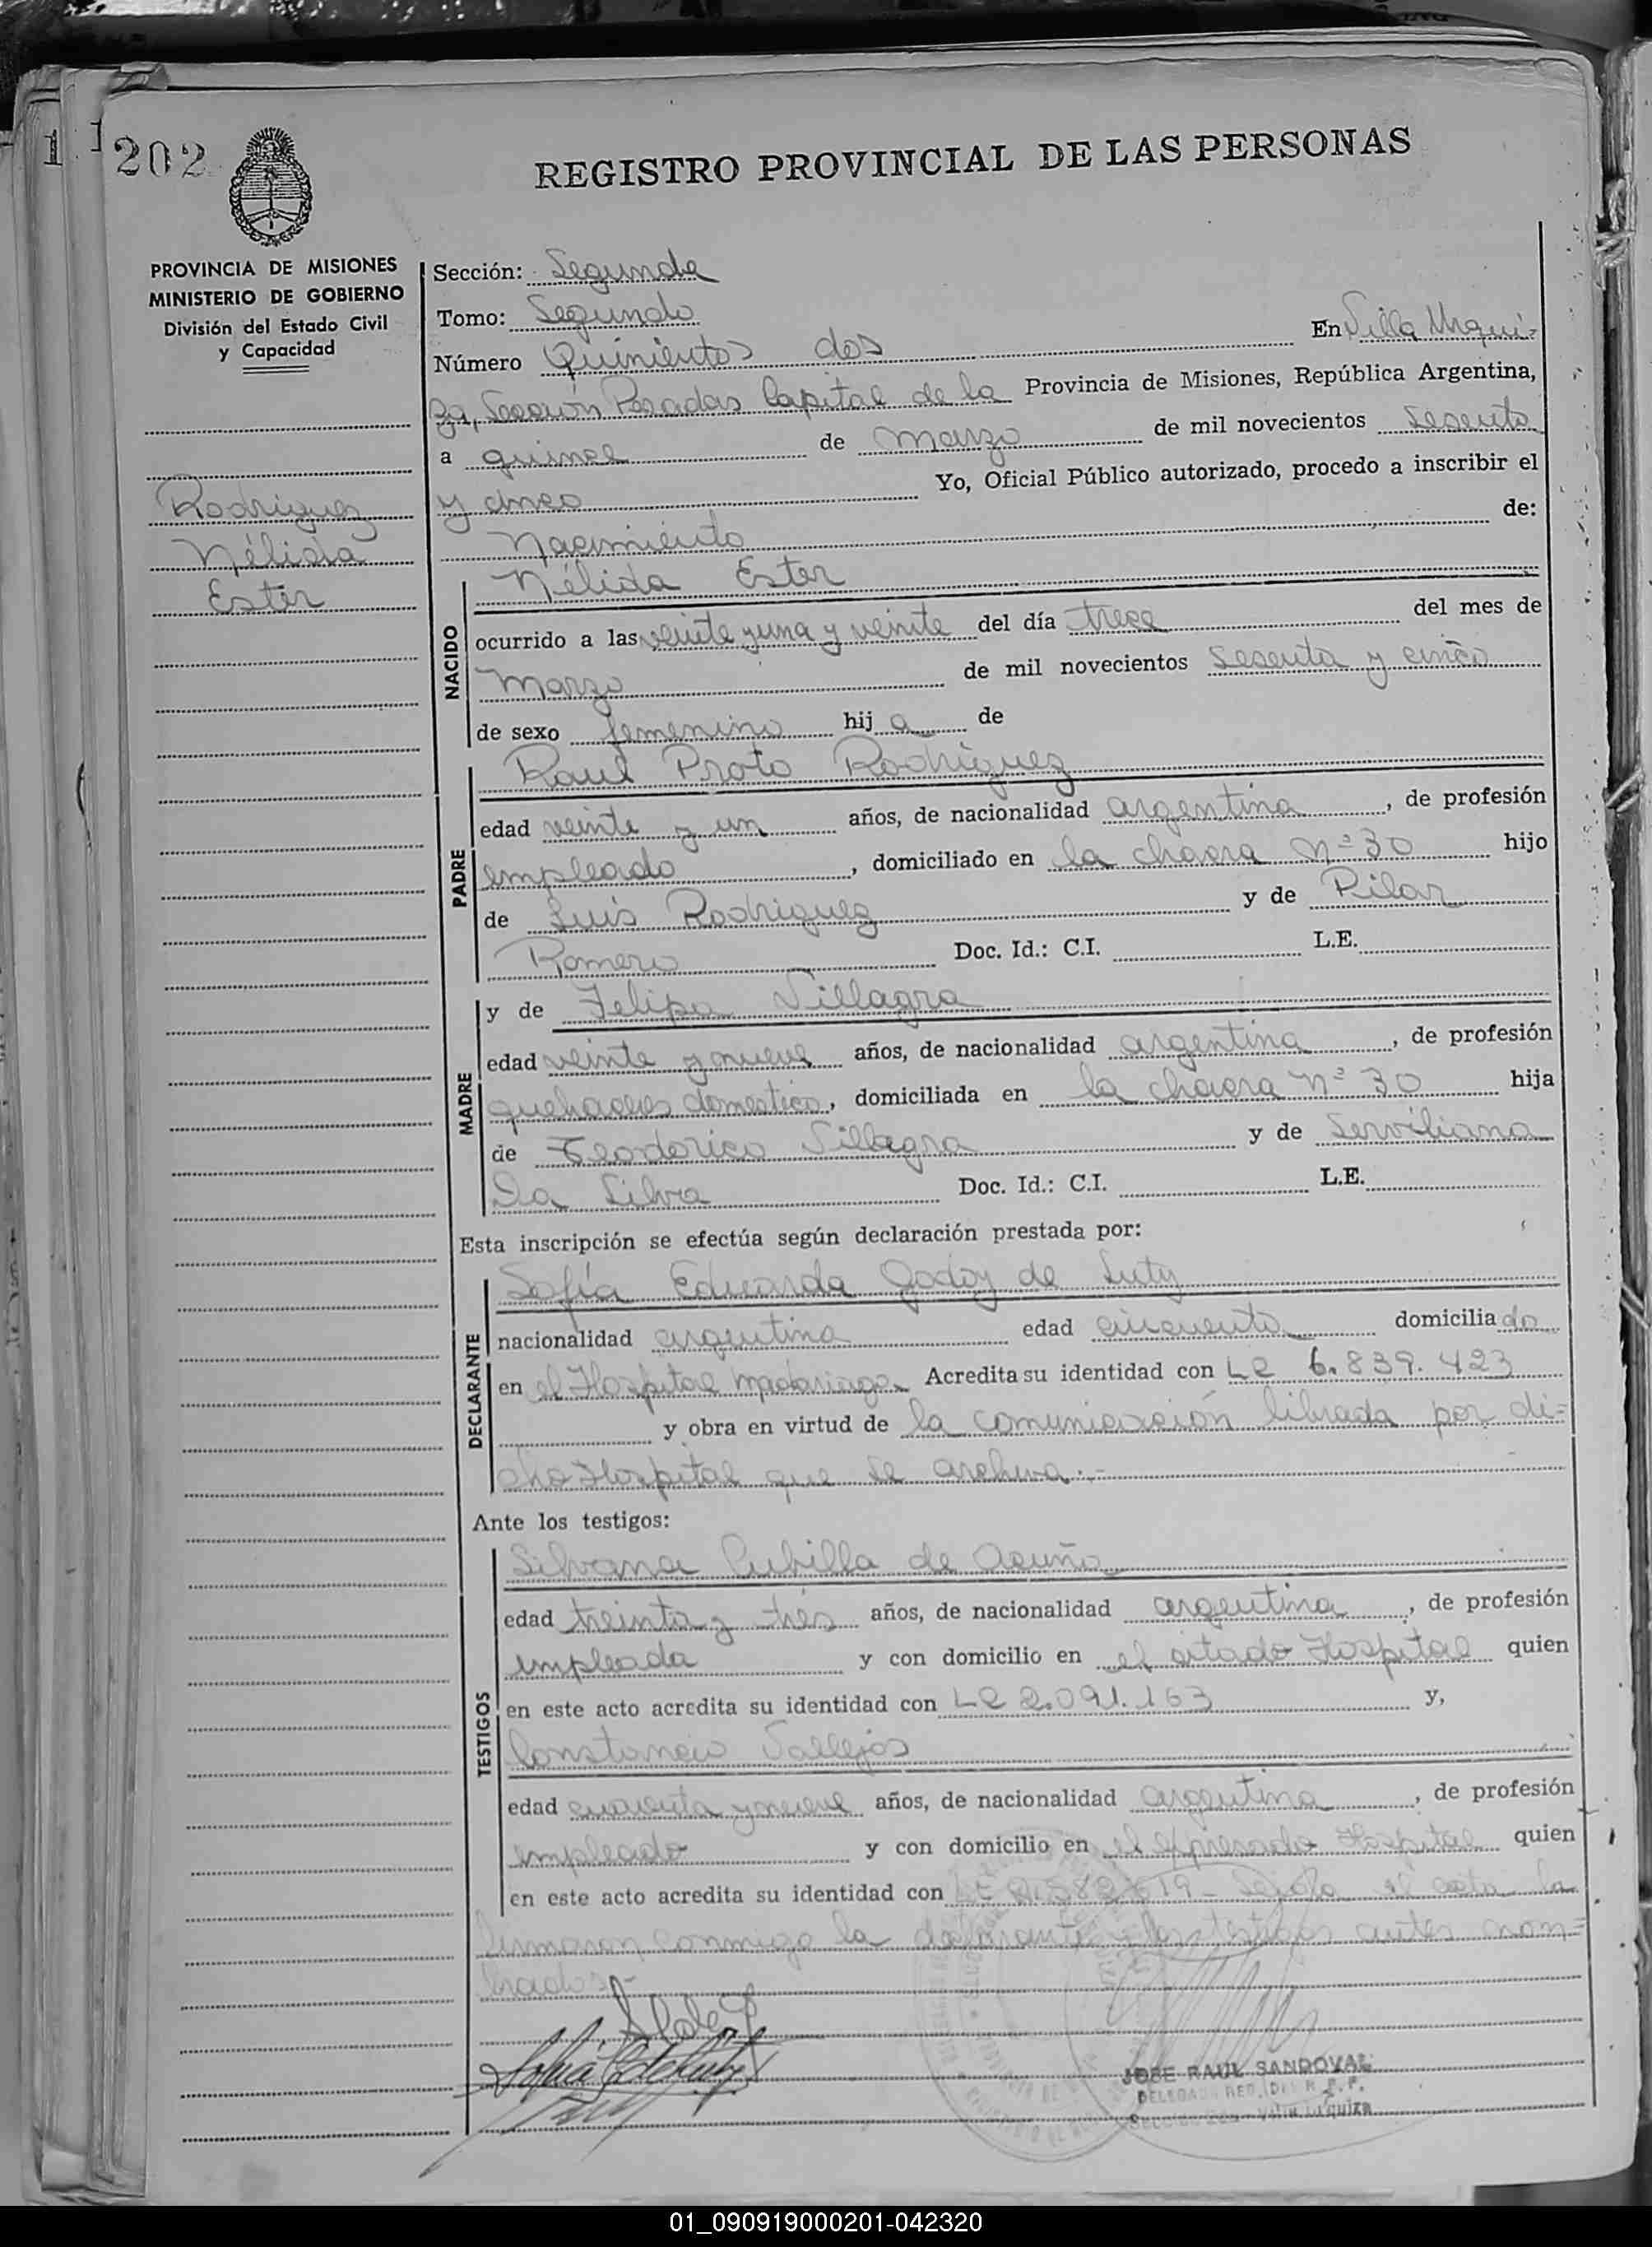 202
REGISTRO PROVINCIAL DE LAS PERSONAS
PROVINCIA DE MISIONES
MINISTERIO DE GOBIERNO
División del Estado Civil
y Capacidad
Rodriguez
Nélida
Ester
Sección: Segunda
Tomo: Segundo
Número Quinientos dos En Villa Urqui=
za, Sección Posadas Capital de la Provincia de Misiones, República Argentina,
a quince de marzo de mil novecientos sesenta
y cinco Yo, Oficial Público autorizado, procedo a inscribir el
Nacimiento de:
NACIDO
Nélida Ester
ocurrido a las veinte y una y veinte del día trece del mes de
Marzo de mil novecientos sesenta y cinco
de sexo femenino hij a de
PADRE
Raul Proto Rodriguez
edad veinte y un años, de nacionalidad argentina, de profesión
empleado, domiciliado en la chacra Nº 30 hijo
de Luis Rodriguez y de Pilar
Romero Doc. Id.: C.I. L.E.
MADRE
y de Felipa Villagra
edad veinte y nueve años, de nacionalidad argentina, de profesión
quehaceres domestico, domiciliada en la chacra Nº 30 hija
de Teodorico Villagra y de Serviliana
Da Silva Doc. Id.: C.I. L.E.
Esta inscripción se efectúa según declaración prestada por:
DECLARANTE
Sofía Eduarda Godoy de Luty
nacionalidad argentina edad cincuenta domicilia do
en el Hospital Madariaga Acredita su identidad con LC 6.839.423
y obra en virtud de la comunicación librada por di=
cho Hospital que se archiva.-
Ante los testigos:
TESTIGOS
Silvana Cubilla de Acuña
edad treinta y tres años, de nacionalidad argentina, de profesión
empleada y con domicilio en el citado Hospital quien
en este acto acredita su identidad con LC 2.091.163 y,
Constancio Vallejos
edad cuarenta y nueve años, de nacionalidad argentina, de profesión
empleado y con domicilio en el expresado Hospital quien
en este acto acredita su identidad con el acta la
firmaron conmigo la declarante y los testigos antes nom=
brados.-
JOSE RAUL SANDOVAL
01_090919000201-042320